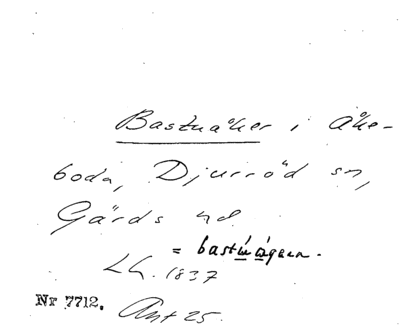 Bastuåker i Åke-
boda, Djurröd sn,
Gärds hd.
= bastuågaen.
Lh. 1837
Nr 7712. Ant 25.